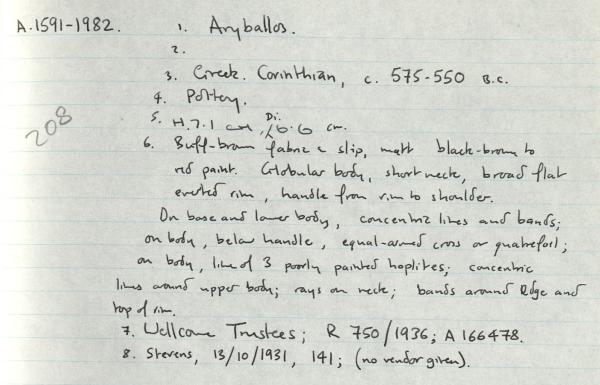 A.1591-1982. 1. Aryballos.
2.
3. Greek. Corinthian, c. 575-550 B.C.
4. Pottery.
5. H. 7.1 cm, Di. 6.6 cm.
208
6. Buff-brown fabric & slip, matt black-brown to
red paint. Globular body, short neck, broad flat
everted rim, handle from rim to shoulder.
On base and lower body, concentric lines and bands;
on body, below handle, equal-armed cross or quatrefoil;
on body, line of 3 poorly painted hoplites; concentric
lines around upper body; rays on neck; bands around edge and
top of rim.
7. Wellcome Trustees; R 750/1936; A 166478.
8. Stevens, 13/10/1931, 141; (no vendor given).